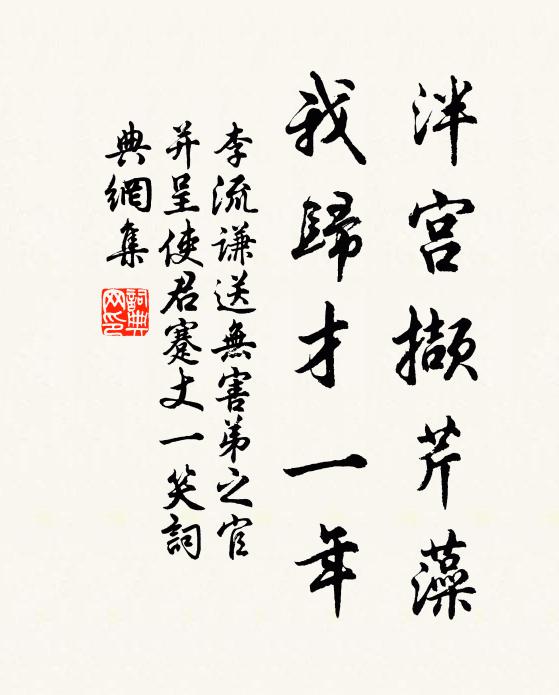 泮宮擷芹藻
我歸才一年
李流謙送無害弟之官
并呈使君蹇丈一笑詞
典網集
詞典網印